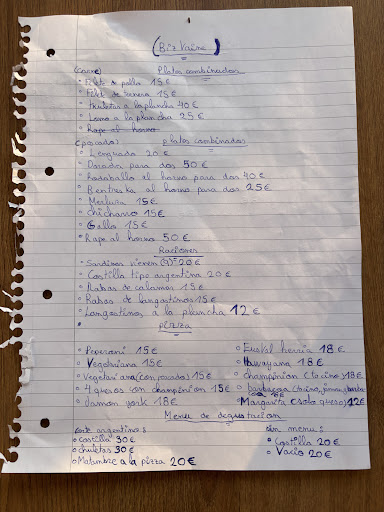 (Biz Vaine)
(Carne) Platos combinados
• Filete de pollo 15€
• Filet de ternera 15€
• Chuletas a la plancha 40€
• Lomo a la plancha 25€
• Rape al horno
(pescado) platos combinados
• Lenguado 20€
• Dorada para dos 50€
• Rodoballo al horno para dos 40€
• Bentreska al horno para dos 25€
• Merluza 15€
• chicharro 15€
• Gallo 15€
• Rape al horno 50€
Raciones
• Sardinas 20€
• Costilla tipo argentina 20€
• Rabas de calamar 15€
• Rabas de langostinos 15€
• Langostinos a la plancha 12€
pizza
• Peperoni 15€ • Euskal herria 18€
• Vegetariana 15€ • Hawayana 18€
• Vegetariana (con pescado) 15€ • champinion (tocino) 18€
• 4 quesos con champinion 15€ • barbacoa
• Jamon york 18€ • Margarita (solo queso) 12€
Menu de degustacion
argentinos sin menus
• Costilla 30€ • Costilla 20€
• chuletas 30€ • Vacio 20€
• Matambre a la pizza 20€